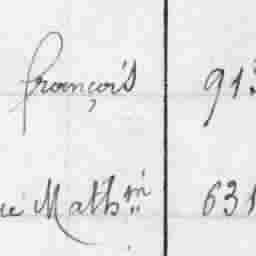 françois 913
ue Mathin 631